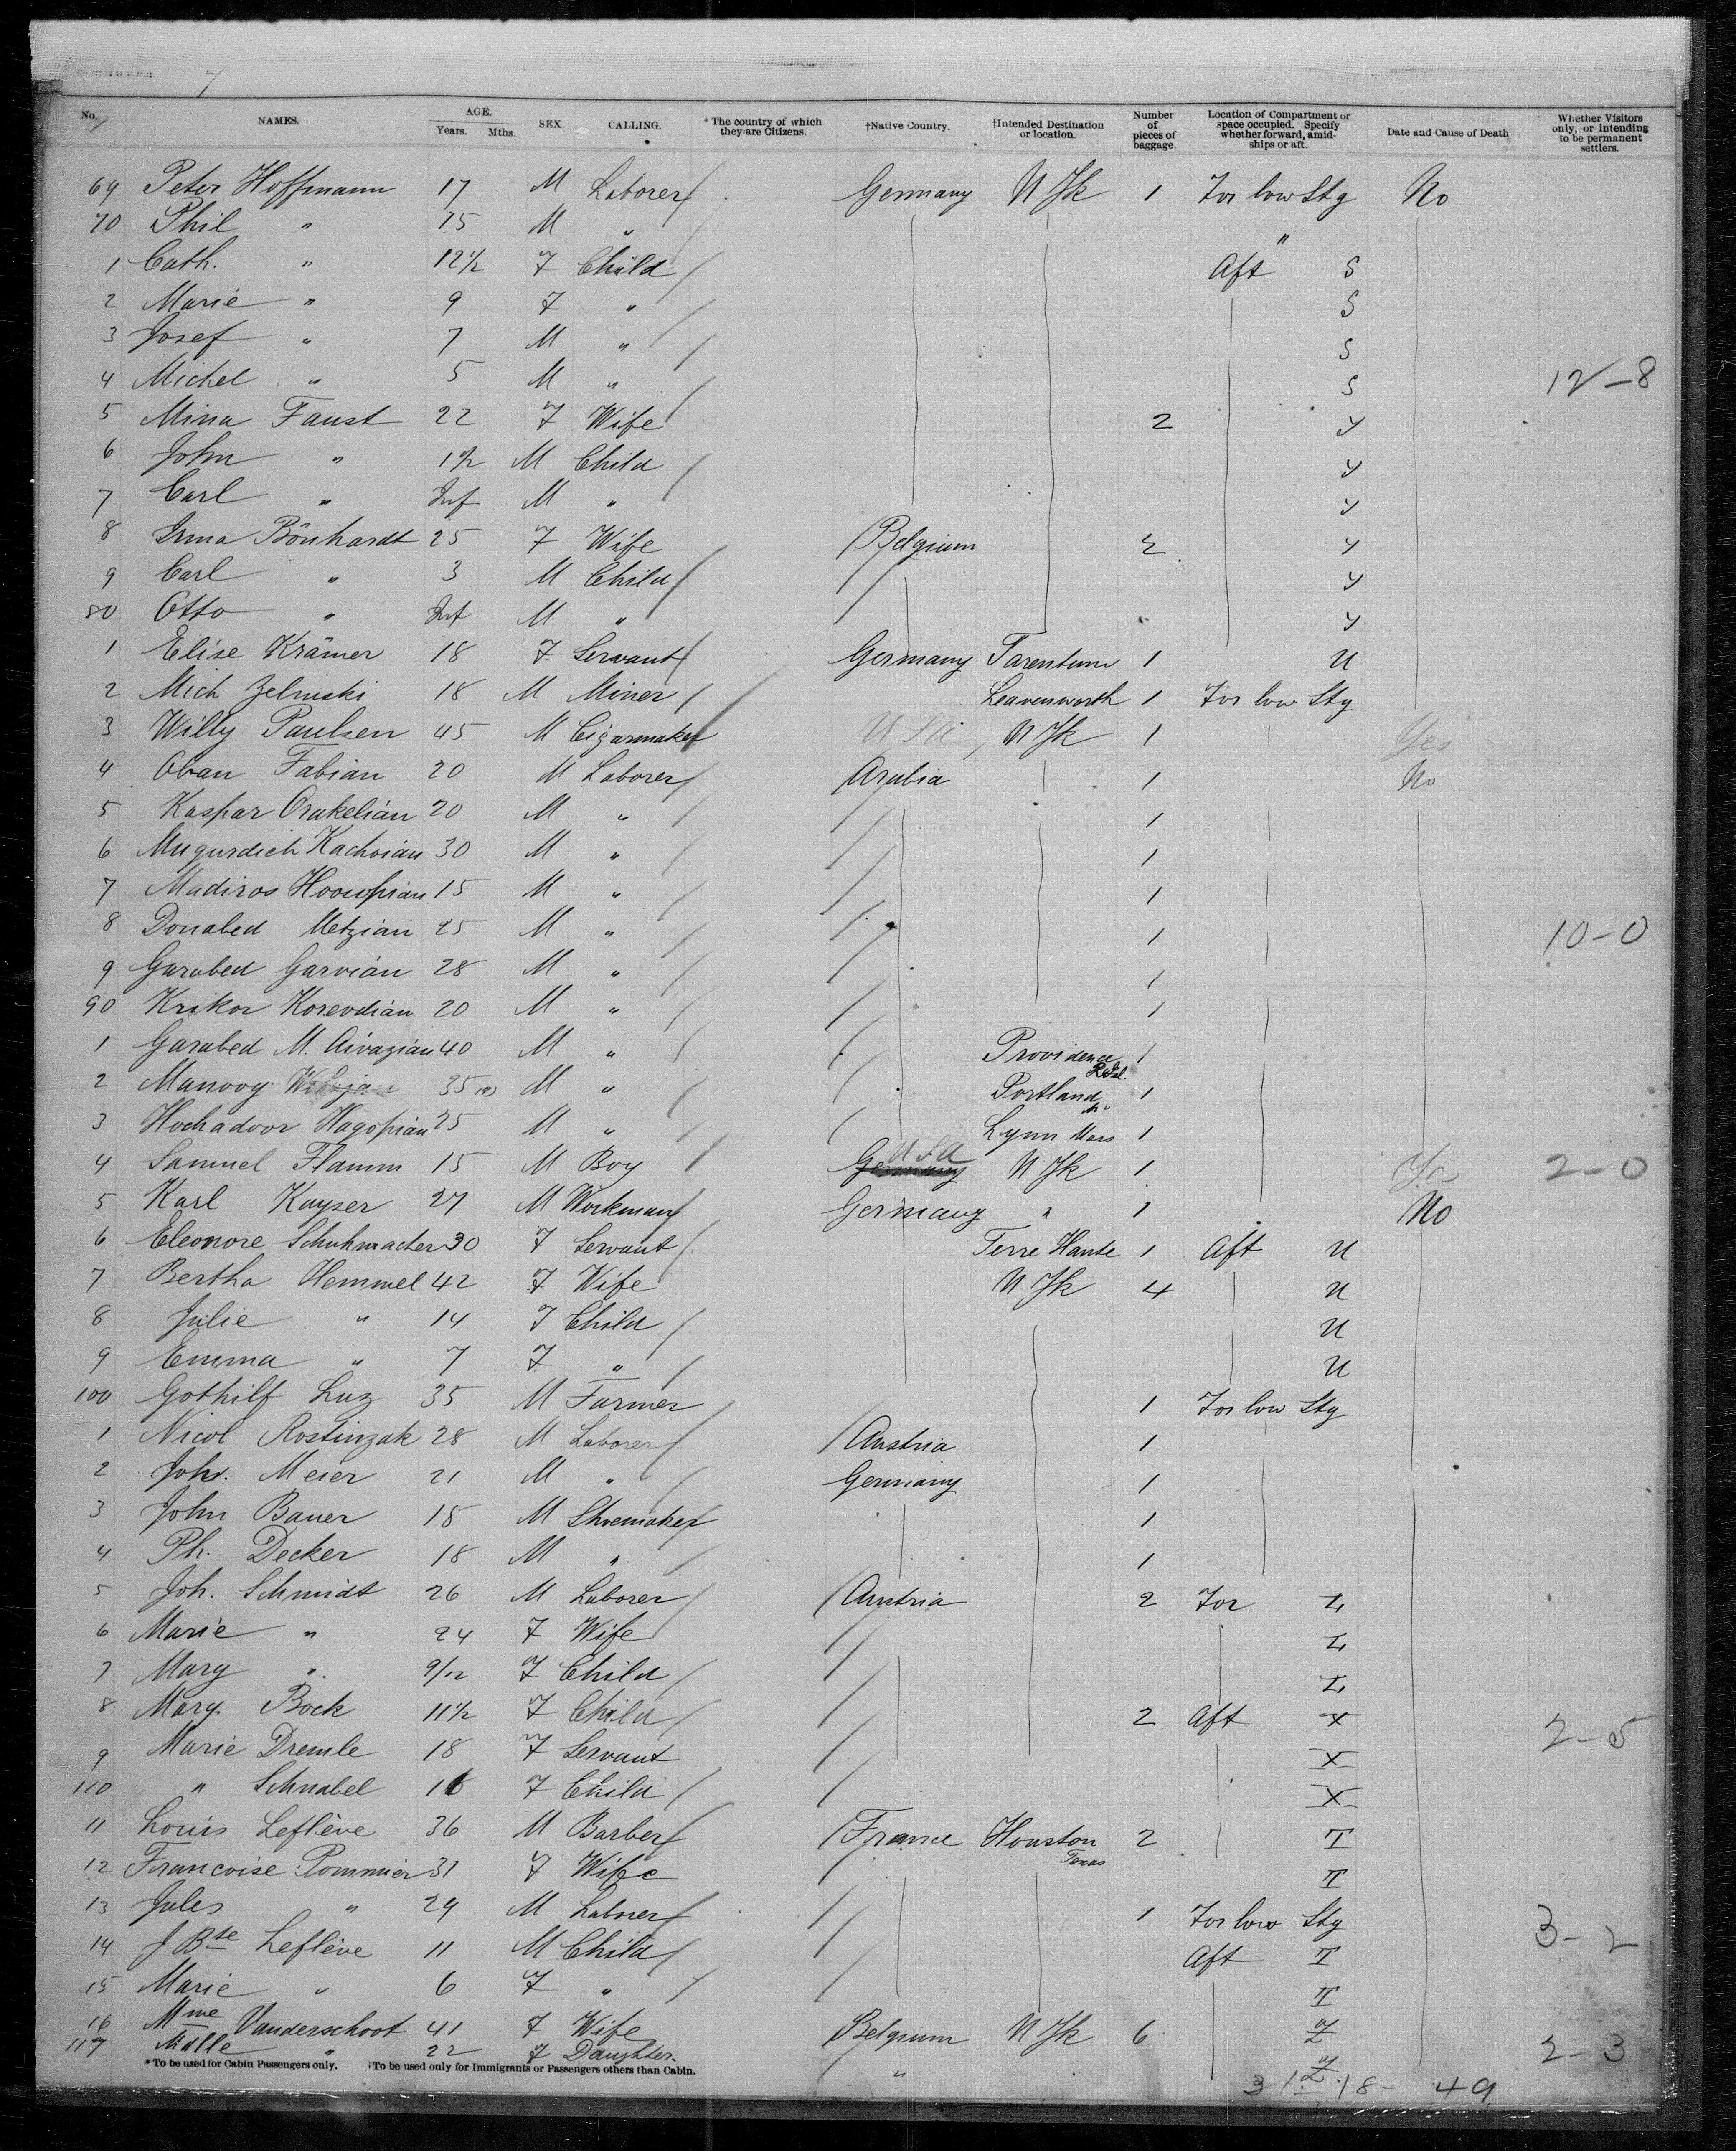 7
No. NAMES. AGE. Years. Mths. SEX. CALLING. *The country of which they are Citizens. †Native Country. †Intended Destination or location. Number of pieces of baggage. Location of Compartment or space occupied. Specify whether forward, amidships or aft. Date and Cause of Death Whether Visitors only, or intending to be permanent settlers.
69 Peter Hoffmann 17 M Laborer Germany N Yk 1 For low Stg No
70 Phil " 15 M " "
1 Cath. " 12 1/2 F Child Aft S
2 Marie " 9 F " S
3 Josef " 7 M " S
4 Michel " 5 M " S 12-8
5 Mina Faust 22 F Wife 2 Y
6 John " 1 1/2 M Child Y
7 Carl " Inf M " Y
8 Irma Bönhardt 25 F Wife Belgium 2 Y
9 Carl " 3 M Child Y
80 Otto " Inf M " Y
1 Elise Krämer 18 F Servant Germany Tarentum 1 U
2 Mich Zelinski 18 M Miner Leavenworth 1 For low Stg
3 Willy Paulsen 45 M Cigarmaker USA N Yk 1 Yes
4 Ovan Fabian 20 M Laborer Arabia 1 No
5 Kaspar Orakelian 20 M " 1
6 Mugurdich Kachoian 30 M " 1
7 Madiros Hoosepian 15 M " 1
8 Donabed Metzian 25 M " 1 10-0
9 Garabed Garvian 28 M " 1
90 Krikor Korevdian 20 M " 1
1 Garabed M. Aivazian 40 M " Providence R. Isl. 1
2 Manoog 35 M " Portland 1
3 Hochadoor Hagopian 25 M " Lynn Mass 1
4 Samuel Flamm 15 M Boy Germany USA N Yk 1 Yes 2-0
5 Karl Kayser 27 M Workman Germany " 1 No
6 Eleonore Schuhmacher 30 F Servant Terre Haute 1 Aft U
7 Bertha Hemmel 42 F Wife N Yk 4 U
8 Julie " 14 F Child U
9 Emma " 7 F " U
100 Gothilf Luz 35 M Farmer 1 For low Stg
1 Nicol Rostinzak 28 M Laborer Austria 1
2 Joh. Meier 21 M " Germany 1
3 John Bauer 18 M Shoemaker 1
4 Ph. Decker 18 M " 1
5 Joh. Schmidt 26 M Laborer Austria 2 For Z
6 Marie " 24 F Wife Z
7 Marg " 9/12 F Child Z
8 Marg. Bock 11 1/2 F Child 2 Aft X 2-5
9 Marie Dremle 18 F Servant X
110 " Schnabel 16 F Child X
11 Louis Leflève 36 M Barber France Houston Texas 2 T
12 Francoise Pommier 31 F Wife T
13 Jules " 29 M Laborer 1 For low Stg
14 J Bte Leflève 11 M Child Aft T 3-2
15 Marie " 6 F " T
16 Mme Vanderschoot 41 F Wife Belgium N Yk 6 Z
117 Mdlle " 22 F Daughter " Z 2-3
*To be used for Cabin Passengers only. †To be used only for Immigrants or Passengers others than Cabin.
31 18- 49